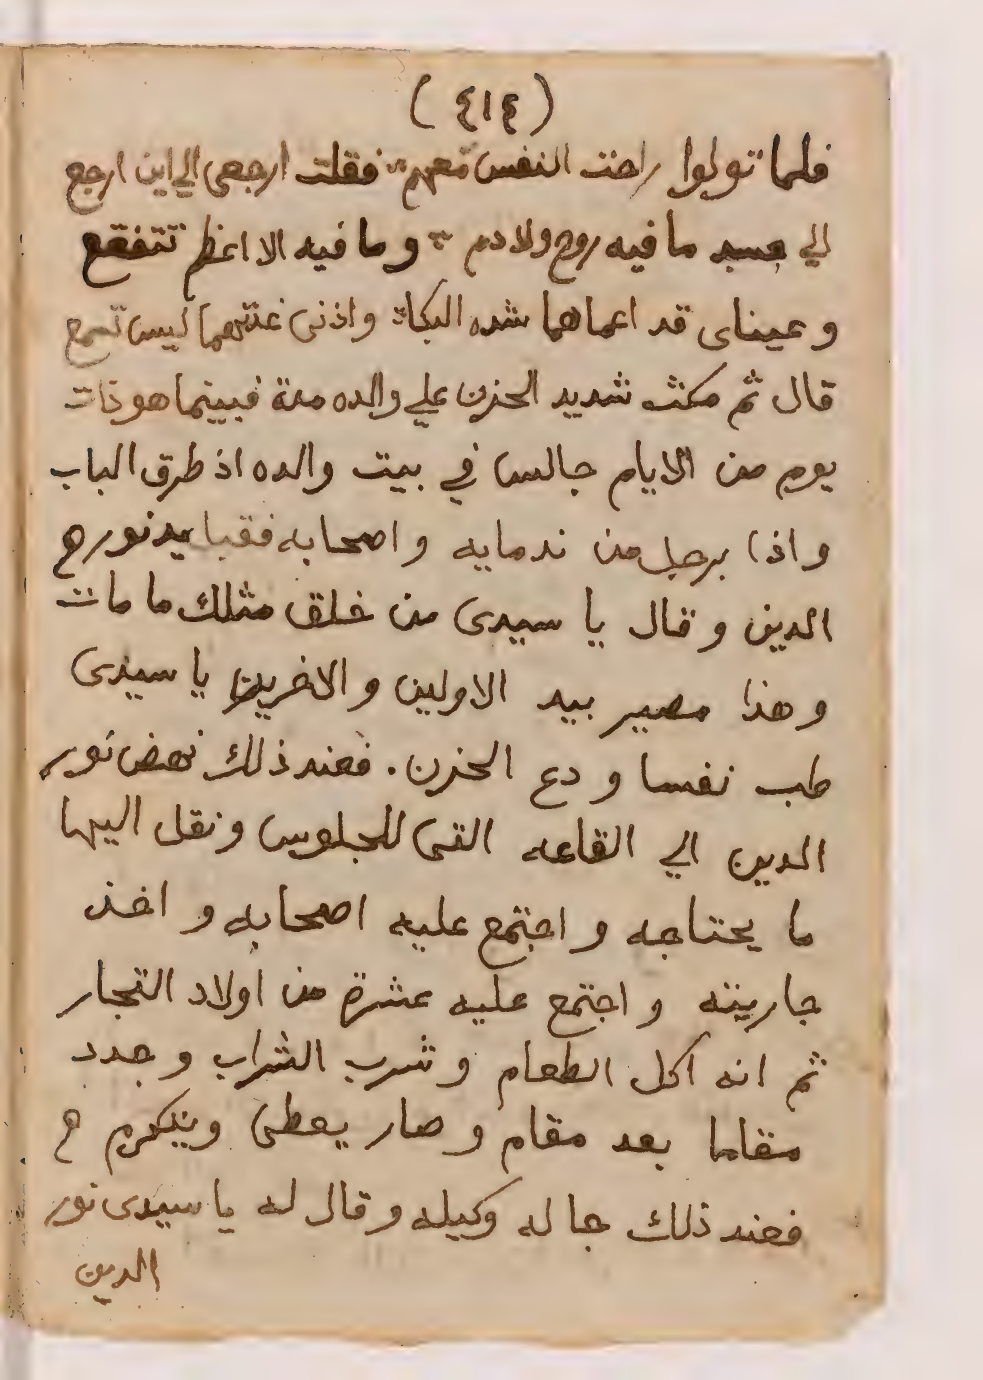 (٤١٤)
فلما تولوا راحت النفس معهم فقلت ارجعى الي اين ارجع
الي جسد ما فيه روح ولا دم وما فيه الا اعظم تتقعقع
وعيناى قد اعماهما شده البكا واذنى عنتهما ليس تسمع
قال ثم مكث شديد الحزن علي والده مدة فبينما هو ذات
يوم من الايام جالس في بيت والده اذ طرق الباب
واذا برجل من ندمايه واصحابه فقبل يد نور
الدين وقال يا سيدى من خلق مثلك ما مات
وهذا مصير بيد الاولين والاخرين يا سيدى
طب نفسا ودع الحزن. فعند ذلك نهض نور
الدين الي القاعه التى للجلوس ونقل اليها
ما يحتاجه واجتمع عليه اصحابه واخذ
جاريته واجتمع عليه عشرة من اولاد التجار
ثم انه اكل الطعام وشرب الشراب وجدد
مقاما بعد مقام وصار يعطى ويتكرم
فعند ذلك جا له وكيله وقال له يا سيدى نور
الدين